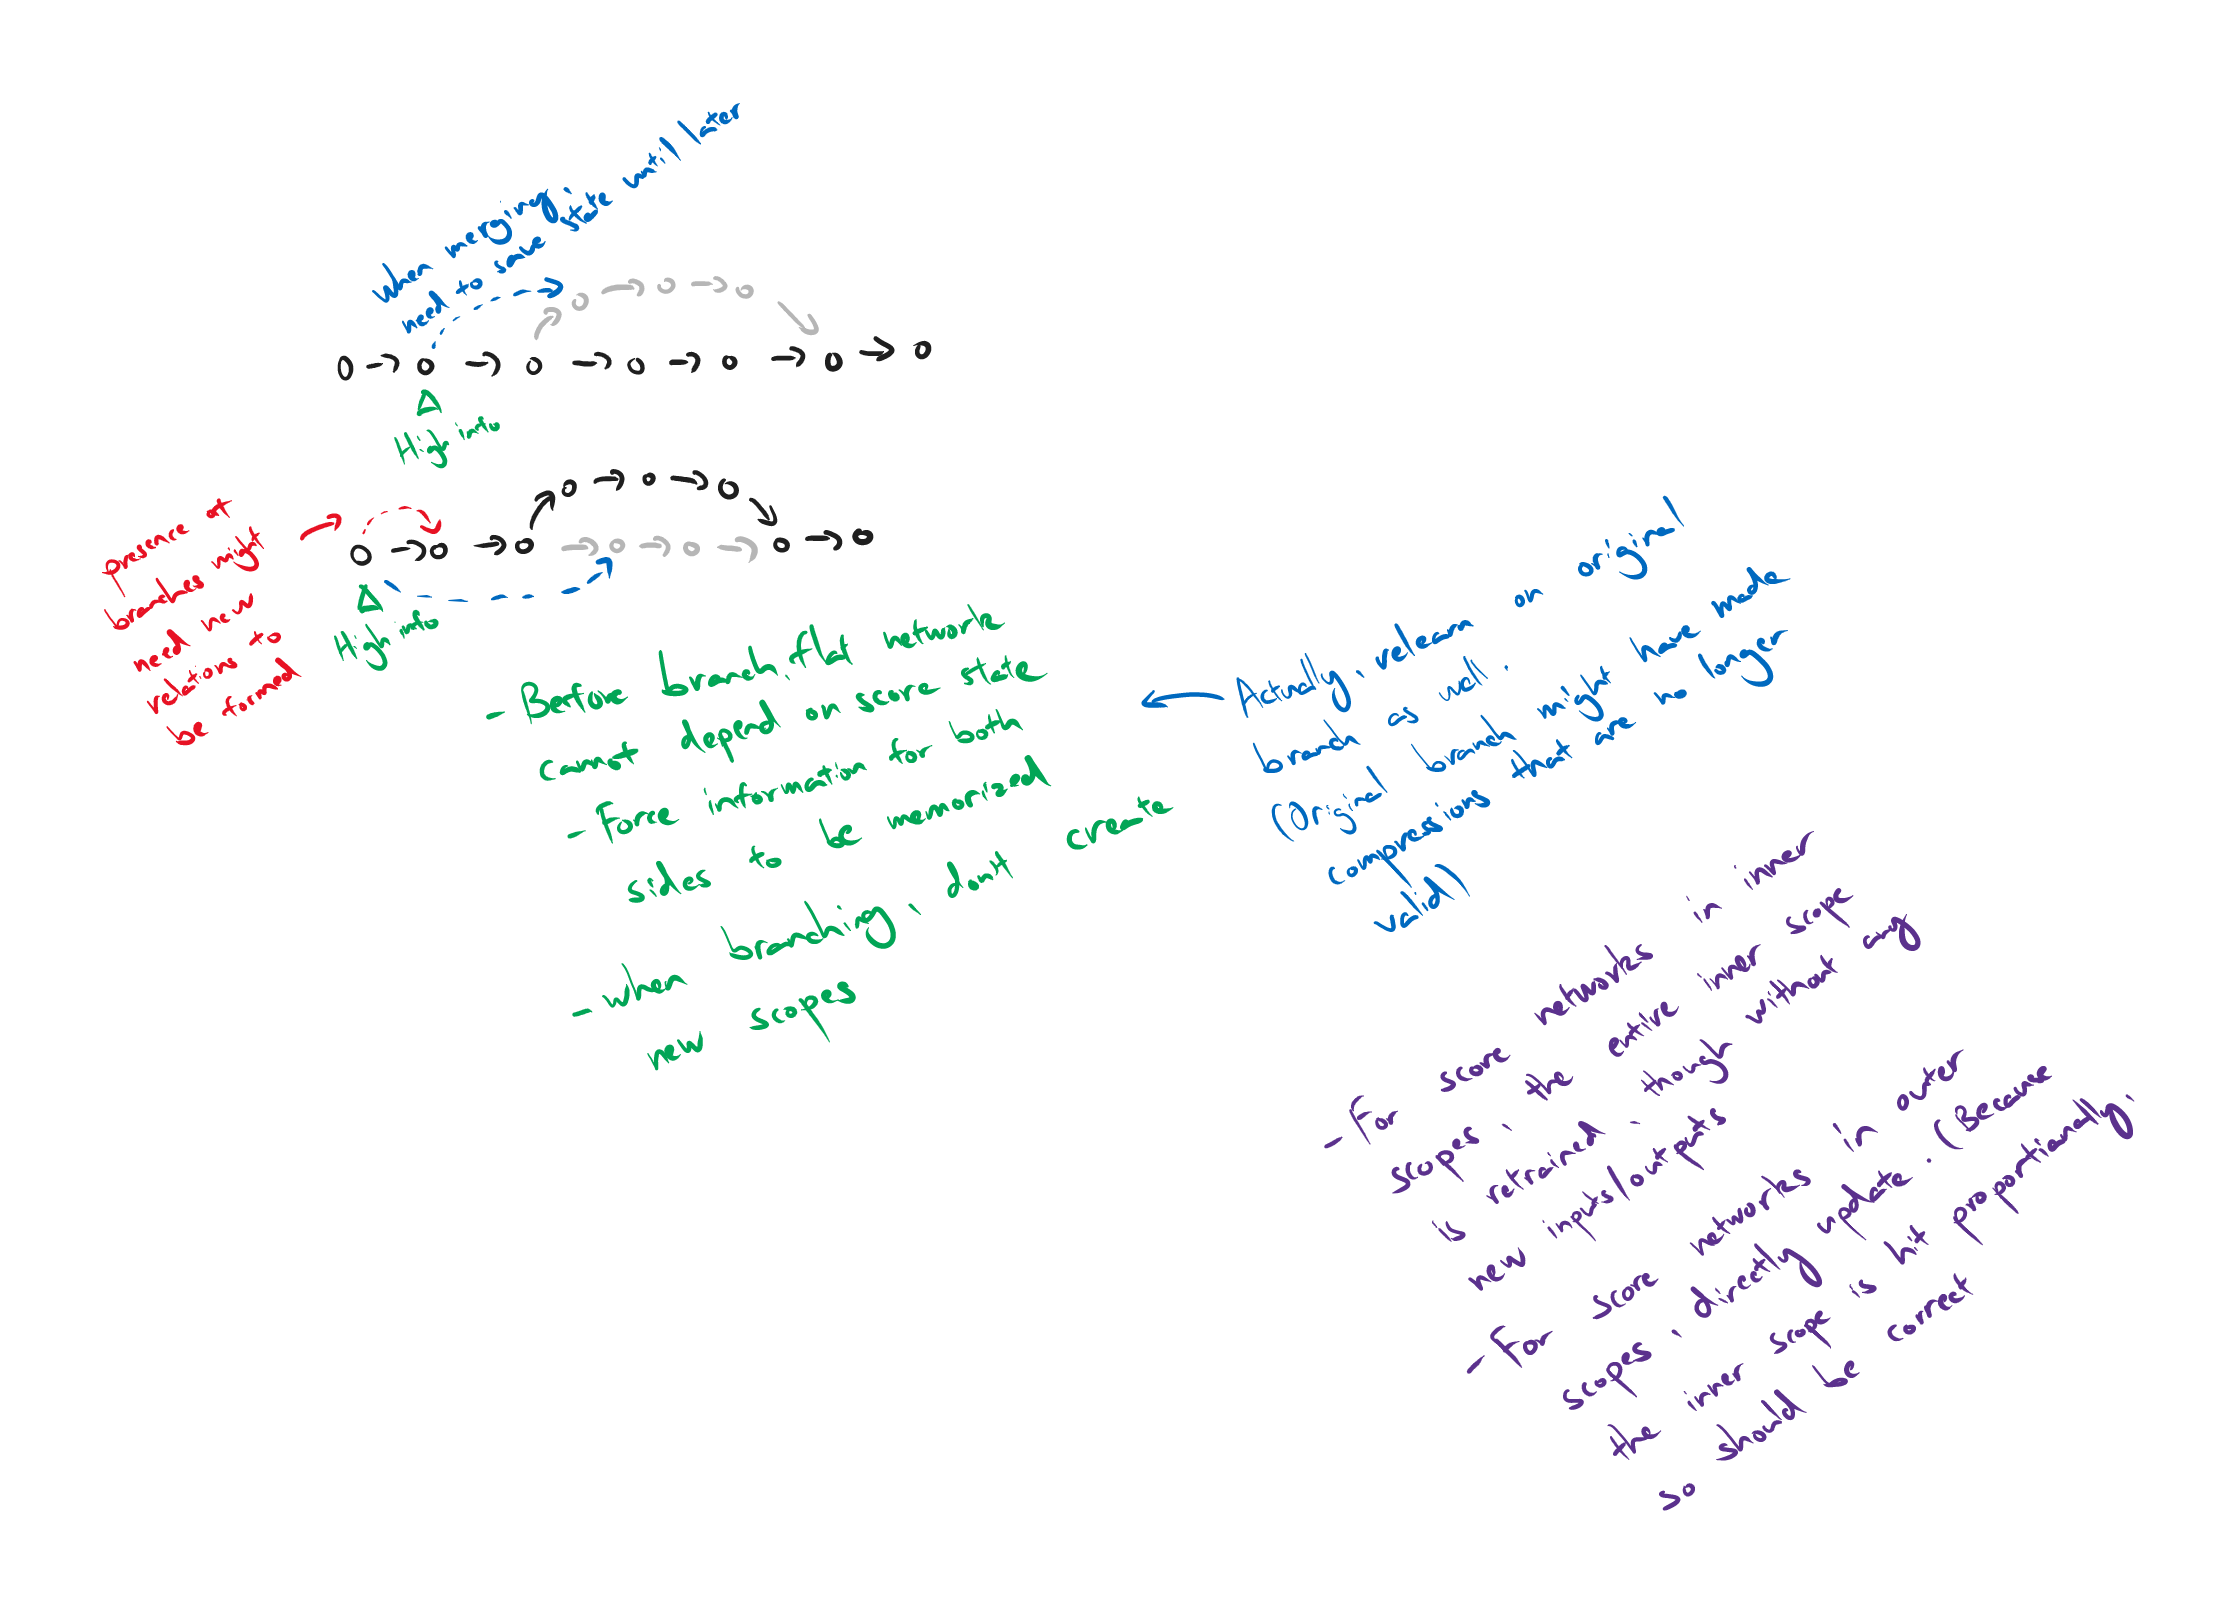 when merging,
need to save state until later
High info
presence of
branches might
need new
relations to
be formed
High info
- Before branch, flat network
cannot depend on score state
- Force information for both
sides to be memorized
- when branching, dont create
new scopes
Actually, relearn on original
branch as well.
(Original branch might have made
compressions that are no longer
valid)
- For score networks in inner
scopes, the entire inner scope
is retrained, though without any
new inputs/outputs
- For score networks in outer
scopes, directly update. (Because
the inner scope is hit proportionally,
so should be correct